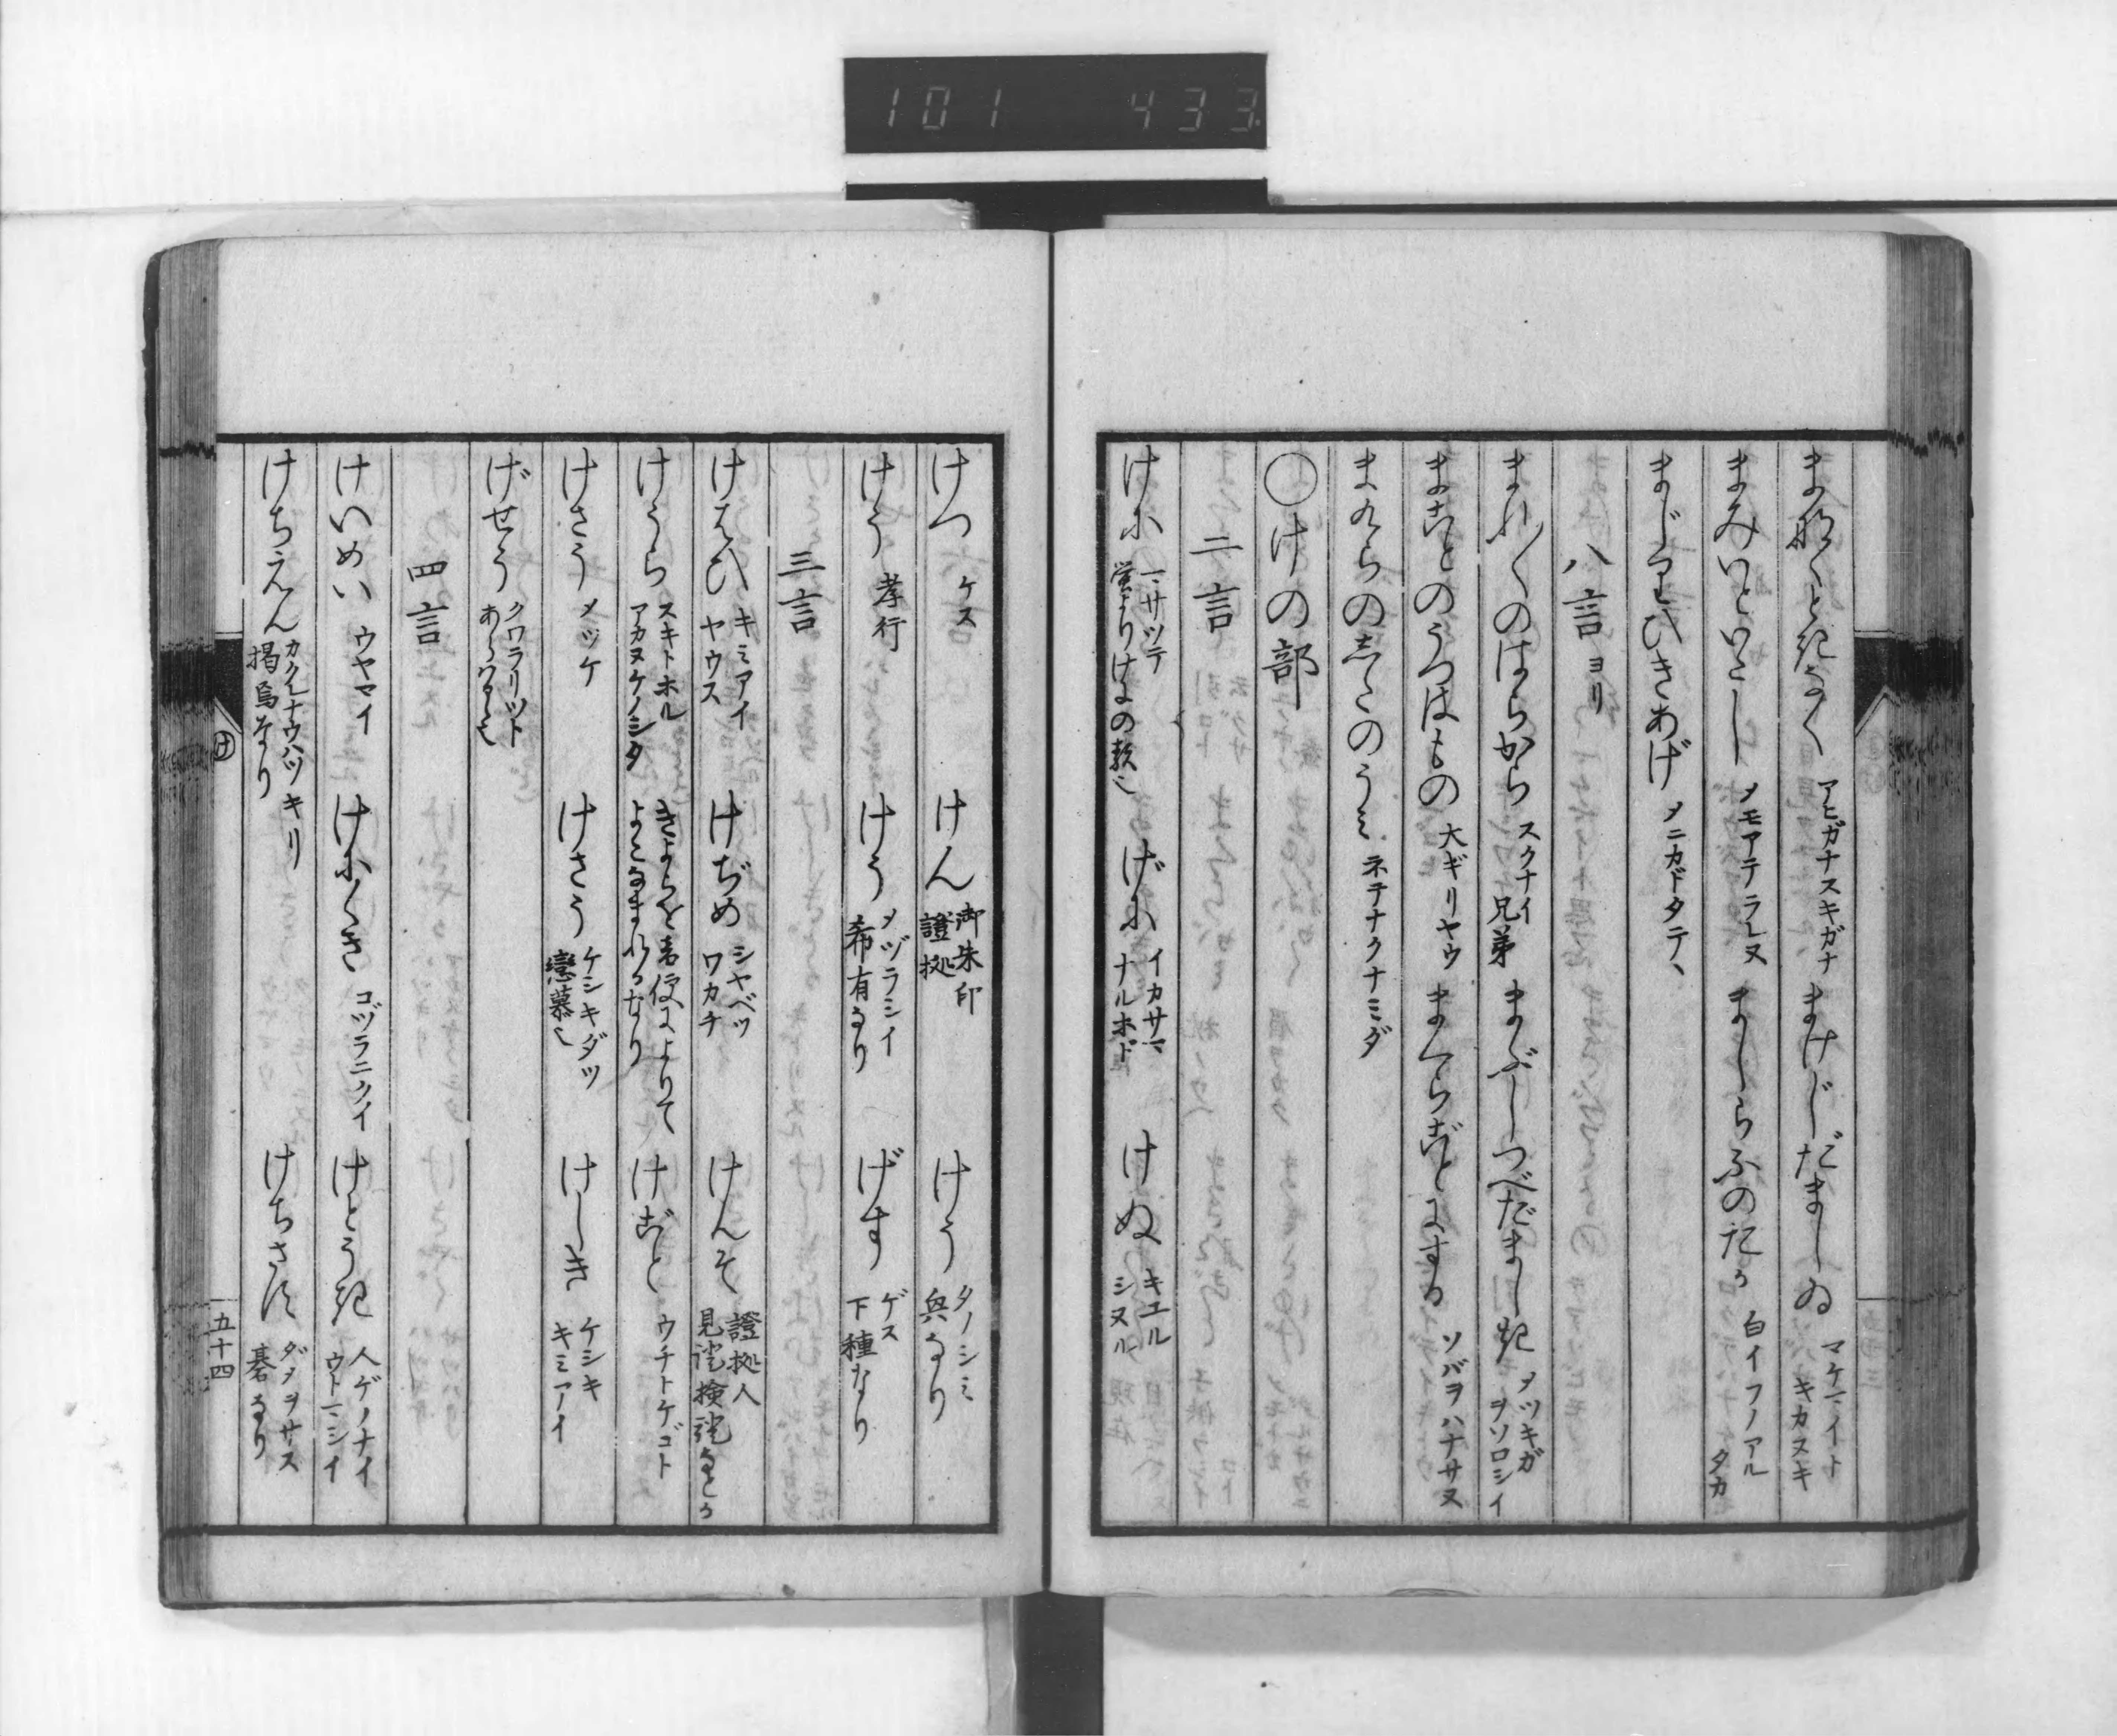 101 433
まなくときなく アヒガナスキガナ まけじだましゐ マケマイト キカヌキ
まみいといたし メモアテラレヌ ましらふのたか 白イフノアル タカ
まじりひきあげ メニカドタテヽ
八言ヨリ
まれ〱のはらから スクナイ兄弟 まぶしつべたましき メツキガ ヲソロシイ
まことのうつはもの 大ギリヤウ まくらごとにする ソバヲハナサヌ
まくらのしたのうみ ネテナクナミダ
○けの部
二言
けに マサツテ 常よりけにの類也 げに イカサマ ナルホド けぬ キエル シヌル
けつ ケス けん 御朱印 證拠 けう タノシミ 興なり
けう 孝行 けう メヅラシイ 希有なり げす ゲス 下種なり
三言
けはひ キミアイ ヤウス けぢめ シヤベツ ワカチ けんそ 證拠人 見證検證なとか
けうら スキトホル アカヌケノシタ きよらを音便によりて よこなまれるなり けごと ウチトケゴト
けさう メツケ けさう ケシキダツ 戀慕也 けしき ケシキ キミアイ
げせう クワラリツト あらはる也
四言
けいめい ウヤマイ けにくき コヅラニクイ けとうき 人ゲノナイ ウトマシイ
けちえん カクレナウハツキリ 掲焉なり けちさす ダメヲサス 碁なり
け
五十四